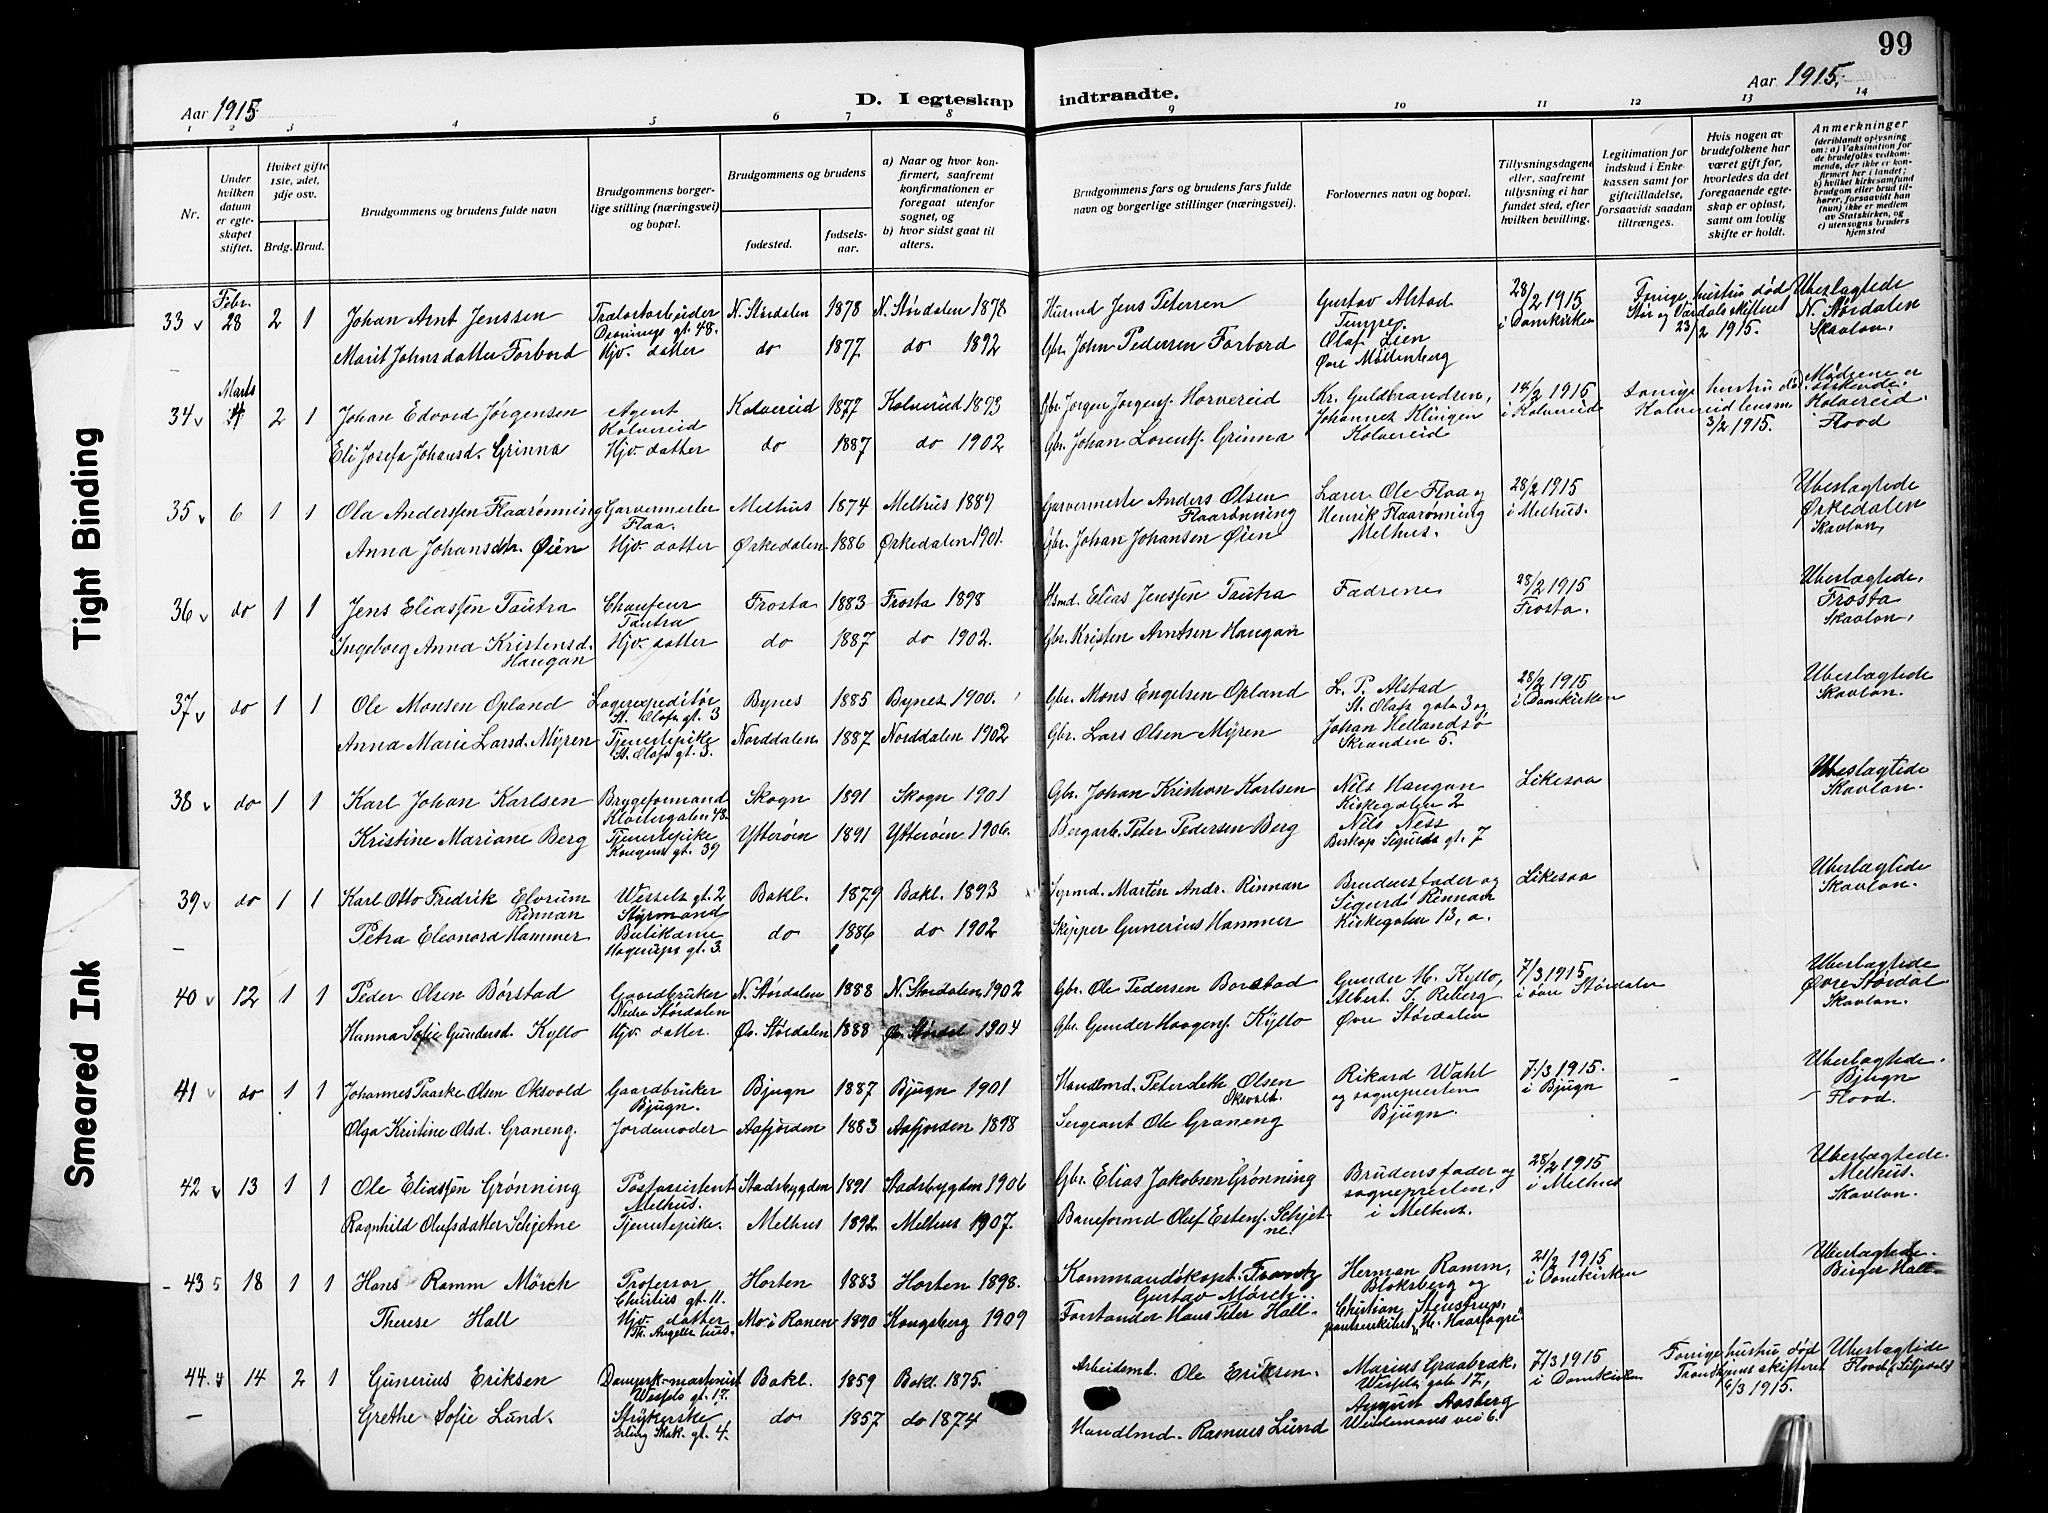 99
Aar 1915.
D. I egteskap indtraadte.
Aar 1915.
1 2 3 4 5 6 7 8 9 10 11 12 13 14
Nr.
Under hvilken datum er egteskapet stiftet.
Hvilket gifte 1ste, 2det, 3dje osv.
Brdg. Brud.
Brudgommens og brudens fulde navn
Brudgommens borgerlige stilling (næringsvei) og bopæl.
Brudgommens og brudens
fødested.
fødselsaar.
a) Naar og hvor konfirmert, saafremt konfirmationen er foregaat utenfor sognet, og
b) hvor sidst gaat til alters.
Brudgommens fars og brudens fars fulde navn og borgerlige stillinger (næringsvei).
Forlovernes navn og bopæl.
Tillysningsdagene eller, saafremt tillysning ei har fundet sted, efter hvilken bevilling.
Legitimation for indskud i Enkekassen samt for giftetilladelse, forsaavidt saadan tiltrænges.
Hvis nogen av brudefolkene har været gift før, hvorledes da det foregaaende egteskap er opløst, samt om lovlig skifte er holdt.
Anmerkninger
(deriblandt oplysning om: a) Vaksination for de brudefolks vedkommende, der ikke er konfirmert her i landet;
b) hvilket kirkesamfund brudgom eller brud tilhører, forsaavidt han (hun) ikke er medlem av Statskirken, og
c) utensogns bruders hjemsted
33 Febr. 28 2 1 Johan Arnt Jenssen
Dronnings gt. 48. N. Stördalen 1878 N. Stördalen 1878
Husmd Jens Petersen
Gustav Alstad
Tempe.
28/2 1915
i Domkirken
Forrige hustru död
Stör og Værdals skifteret
23/2 1915.
Ubeslagtede
N. Stördalen
Skavlan.
Marit Johnsdatter Forbord Hjv. datter do 1877 do 1892
Gbr. John Pedersen Forbord
Olaf Lien
Övre Möllenberg
34 Marts 4 2 1 Johan Edvard Jørgensen Agent
Kolvereid
Kolvereid 1877 Kolvereid 1893
Gbr. Jørgen Jørgens. Horvereid
Kr. Guldbrandsen,
Johannes Klingen
Kolvereid
14/2 1915
i Kolvereid
Forrige hustru död
Kolvereid lensm
3/2 1915.
Kolvereid.
Flood
Eli Josefa Johansd. Grinna Hjv. datter do 1887 do 1902
Gbr. Johan Lorents. Grinna
35 6 1 1 Ola Anderssen Flaarønning Garvermester
Flaa.
Melhus 1874 Melhus 1889
Garvermester Anders Olsen
Flaarønning
Lærer Ole Flaa og
Henrik Flaarønning
Melhus.
28/2 1915
i Melhus.
Ubeslagtede
Ørkedalen
Skavlan.
Anna Johansdtr. Øien Hjv. datter Ørkedalen 1886 Ørkedalen 1901.
Gbr. Johan Johansen Øien
36 do 1 1 Jens Eliassen Tautra Chaufeur
Tautra
Frosta 1883 Frosta 1898
Elias Jenssen Tautra
Fædrene
28/2 1915
Frosta.
Ubeslagtede.
Frosta
Skavlan.
Ingeborg Anna Kristensd.
Haugan
Hjv. datter do 1887 do 1902.
Gbr. Kristen Arntsen Haugan
37 do 1 1 Ole Monsen Opland Lagerexpeditör
St. Olafs gt. 3
Bynes 1885 Bynes 1900.
Gbr. Mons Engelsen Opland
L. P. Alstad
St. Olafs gate 3 og
28/2 1915
i Domkirken
Ubeslagtede
Skavlan.
Anna Marie Larsd. Myren Tjenestepike
St. Olafs gt. 3.
Norddalen 1887 Norddalen 1902
Gbr. Lars Olsen Myren
Johan Hellandsö
Skranden 5.
38 do 1 1 Karl Johan Karlsen Bryggeformand
Klostergaten 48.
Skogn 1891 Skogn 1901
Gbr. Johan Kristian Karlsen
Nils Haugan
Kirkegaten 2
Likesaa
Ubeslagtede
Skavlan.
Kristine Mariane Berg Tjenestepike
Kongens gt. 39
Ytterøen 1891 Ytterøen 1906.
Bergarb. Peter Pedersen Berg
Nils Ness
Biskop Sigurds gt. 7
39 do 1 1 Karl Otto Fredrik Elvrum
Rinnan
Wessels gt. 2
Styrmand
Bakl. 1879 Bakl. 1893
Styrmd. Martin Andr. Rinnan
Brudens fader og
Sigurd Rinnan
Kirkegaten 13, a.
Likesaa
Ubeslagtede
Skavlan.
Petra Eleonora Hammer Butikdame
Hagerups gt. 3.
do 1886 do 1902
Skipper Gunerius Hammer
40 12 1 1 Peder Olsen Börstad Gaardbruker
Nedre Stördalen
N. Stördalen 1888 N. Stördalen 1902
Gbr. Ole Pedersen Borstad
Gunder H. Kyllo,
Albert T. Reberg
Øvre Stördalen
7/3 1915
i övre Stördalen
Ubeslagtede
Øvre Stördal
Skavlan.
Hanna Sofie Gundersd. Kyllo Hjv. datter. Øv. Stördalen 1888 Øv. Stördal 1904
Gbr. Gunder Haagens. Kyllo
41 do 1 1 Johannes Paaske Olsen Oksvold Gaardbruker
Bjugn.
Bjugn 1887 Bjugn 1901
Handlmd. Peter Olsen
Rikard Wahl
og sogneprsten
Bjugn.
7/3 1915.
i Bjugn
Ubeslagtede.
Bjugn
Flood.
Olga Kristine Olsd. Graneng. Jordemoder Aafjorden 1883 Aafjorden 1898
Sergeant Ole Graneng
42 13 1 1 Ole Eliassen Grønning Postassistent
Melhus.
Stadsbygden 1891 Stadsbygden 1906
Gbr. Elias Jakobsen Grønning
Brudens fader og
sognepresten.
i Melhus.
28/2 1915
i Melhus
Ubeslagtede.
Melhus.
Skavlan.
Ragnhild Olufsdatter Schjetne Tjenestepike. Melhus 1892 Melhus 1907.
Baneformd Oluf Estens. Schjetne.
43 18 1 1 Hans Ramm Mörch Professor
Christies gt. 11.
Horten 1883 Horten 1898.
Kommandörkapt. Frantz
Gustav Mörch.
Herman Ramm,
Bloksberg og
21/2 1915
i Domkirken
Ubeslagtede.
Birger Hall
Therese Hall Hjv. datter
Th. Angells hus.
Mo i Ranen 1890 Kongsberg 1909
Forstander Hans Peter Hall.
Christian Stenstrup,
panserskibet "H. Haarfagre"
44. 14 2 1 Gunerius Eriksen
Wessels gt. 17.
Bakl. 1859 Bakl. 1875.
Arbeidsmd. Ole Eriksen.
Marius Graabræk,
Wessels gate 17,
7/3 1915
i Domkirken
Forrige hustru död
Trondhjems skifteret
6/3 1915.
Ubeslagtede
Flood
Grethe Sofie Lund. Strykerske
Erling Skak. gt. 4.
do 1857 do 1874
Handlmd. Rasmus Lund
August Aasberg
Weidemans vei 6.
Tight Binding
Smeared Ink